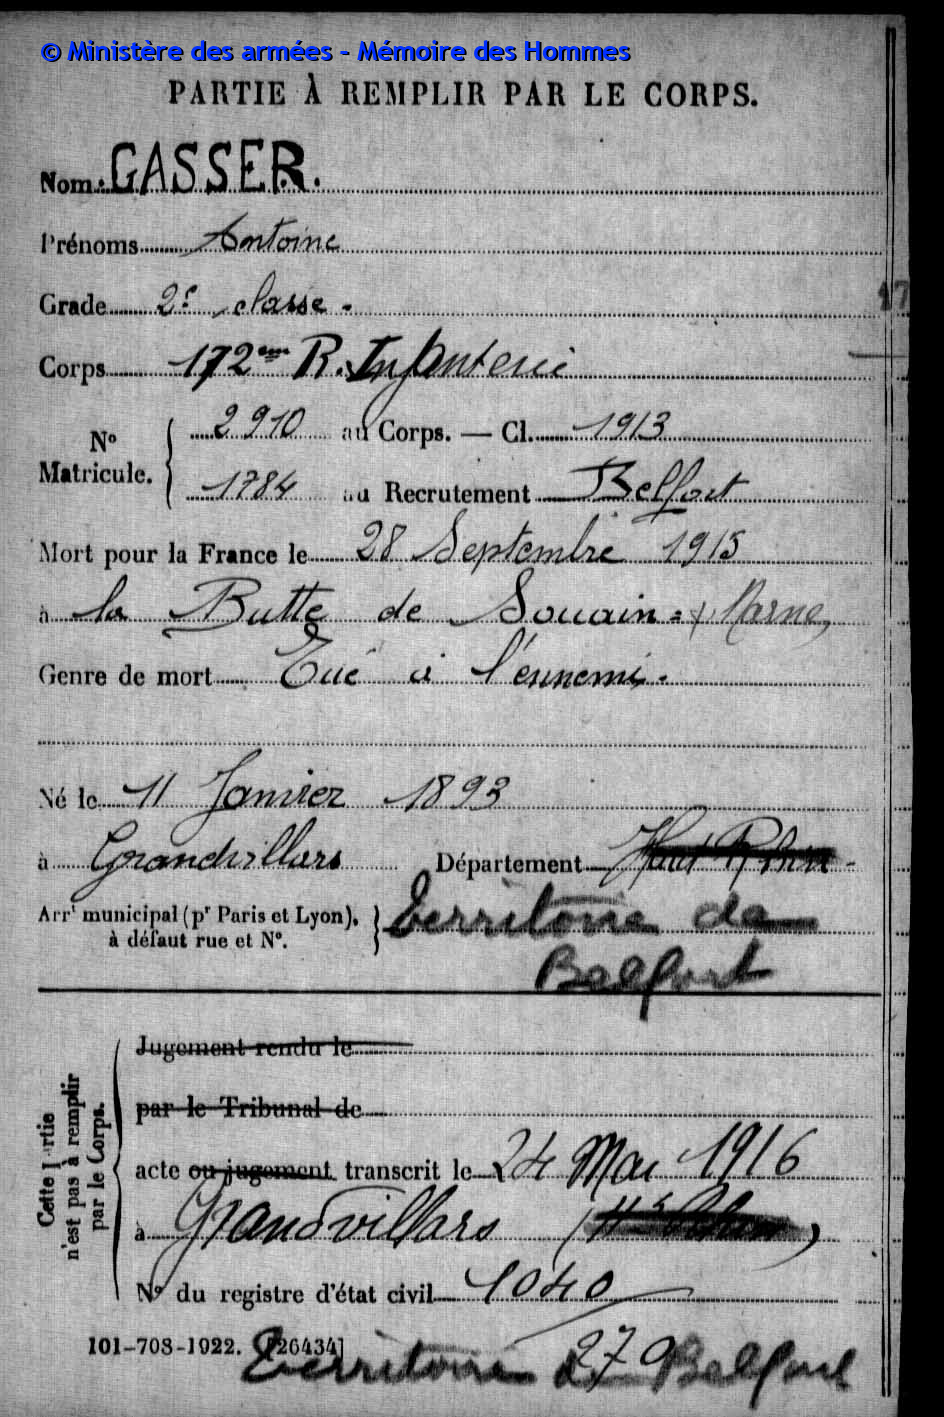 © Ministère des armées - Mémoire des Hommes
PARTIE À REMPLIR PAR LE CORPS.
Nom: GASSER.
Prénoms Antoine
Grade 2e classe.
Corps 172em R. Infanterie
No Matricule. 2910 au Corps. — Cl. 1913
1784 au Recrutement Belfort
Mort pour la France le 28 Septembre 1915
à la Butte de Souain = (Marne)
Genre de mort Tué à l'ennemi.
Né le 11 Janvier 1893
à Grandvillars Département Haut Rhin -
Arrt municipal (pr Paris et Lyon), à défaut rue et No. Territoire de
Belfort
Cette Partie n'est pas à remplir par le Corps.
Jugement rendu le
par le Tribunal de
acte ou jugement transcrit le 24 Mai 1916
à Grandvillars (Ht Rhin)
No du registre d'état civil 1040
101-708-1922. [26434] 270
Territoire de Belfort